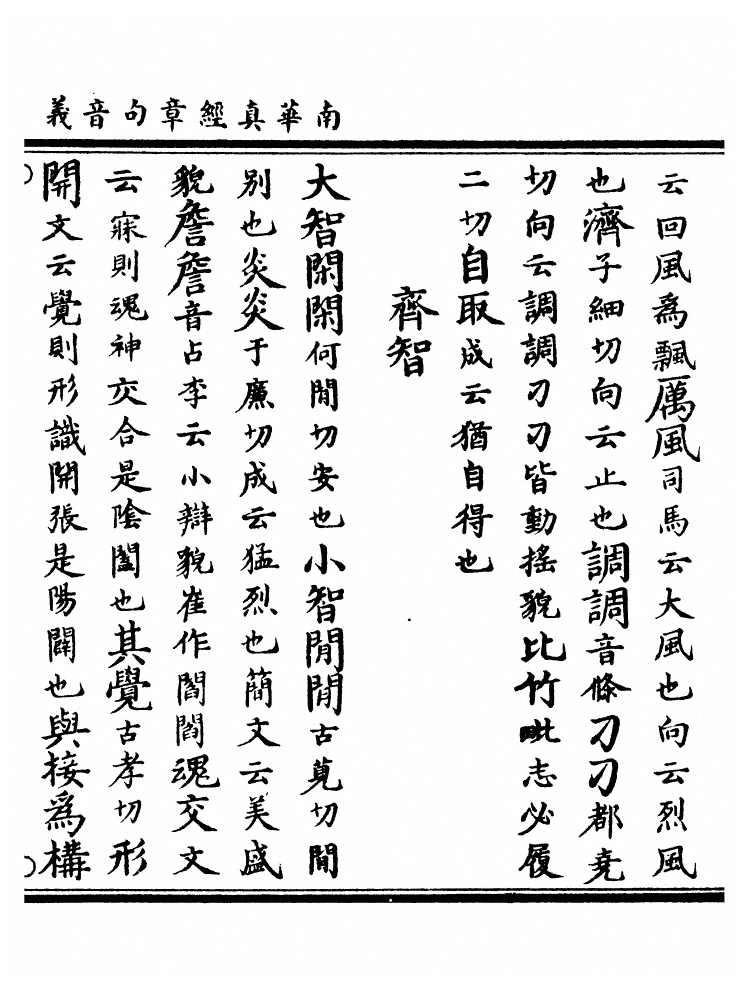 南華真經章句音義
云回風爲飄厲風司馬云大風也向云烈風
也濟子細切向云止也調調音條刁刁都堯
切向云調調刁刁皆動搖貌比竹毗志必履
二切自取成云猶自得也
齊智
大智閑閑何閒切安也小智閒閒古莧切閒
別也炎炎于廉切成云猛烈也簡文云美盛
貌詹詹音占李云小辯貌崔作閻閻魂交文
云寐則魂神交合是陰闔也其覺古孝切形
開文云覺則形識開張是陽闢也與接爲構